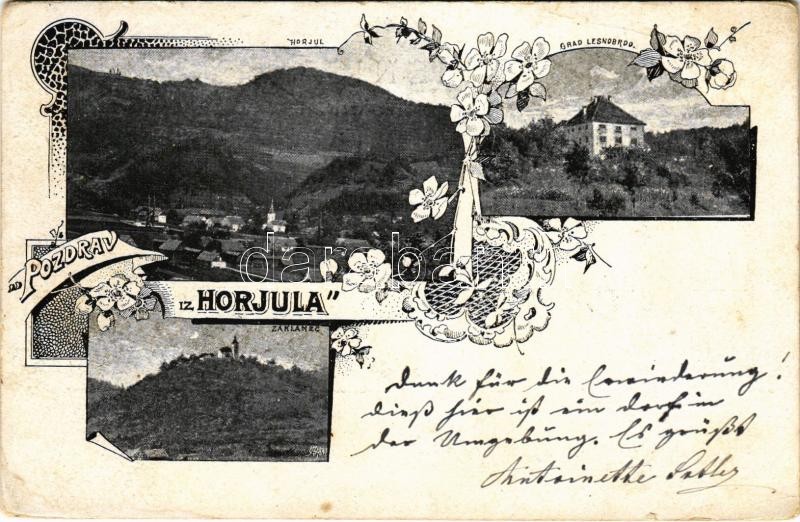 HORJUL
GRAD LESNOBRDO.
„POZDRAV
IZ HORJULA"
ZAKLANEC
darabanth
Dank für die Erwiederung!
dieß hier ist ein dorf in
der Umgebung. Es grüßt
Antoinette